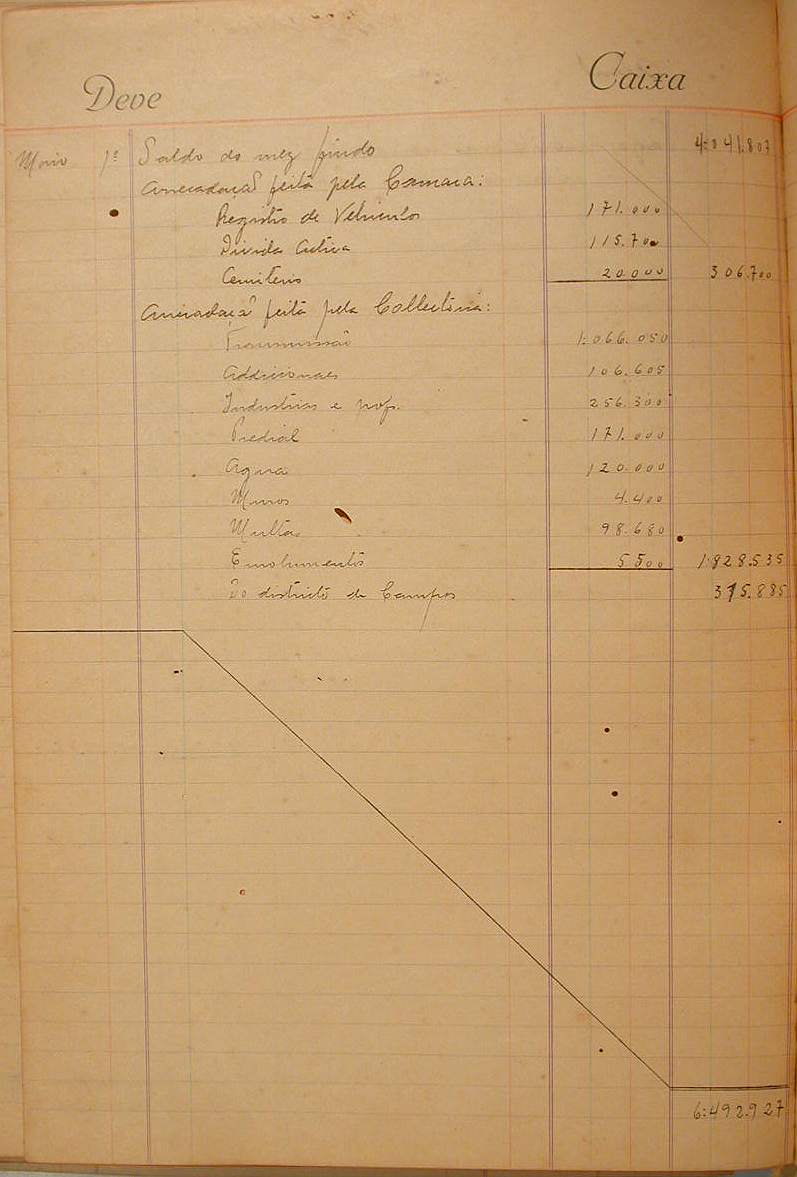 Deve Caixa
Maio 1º Saldo do mez findo 4:041.807
Arrecadação feita pela Camara:
Registro de Vehiculos 171.000
Divida Activa 115.700
Cemiterio 20.000 306.700
Arrecadação feita pela Collectoria:
Transmissão 1:066.050
Addicionaes 106.605
Industrias e prof. 256.300
Predial 171.000
Agua 120.000
Muros 4.400
Multas 98.680
Emolumentos 5.500 1:828.535
Do districto de Campos 315.885
6:492.927